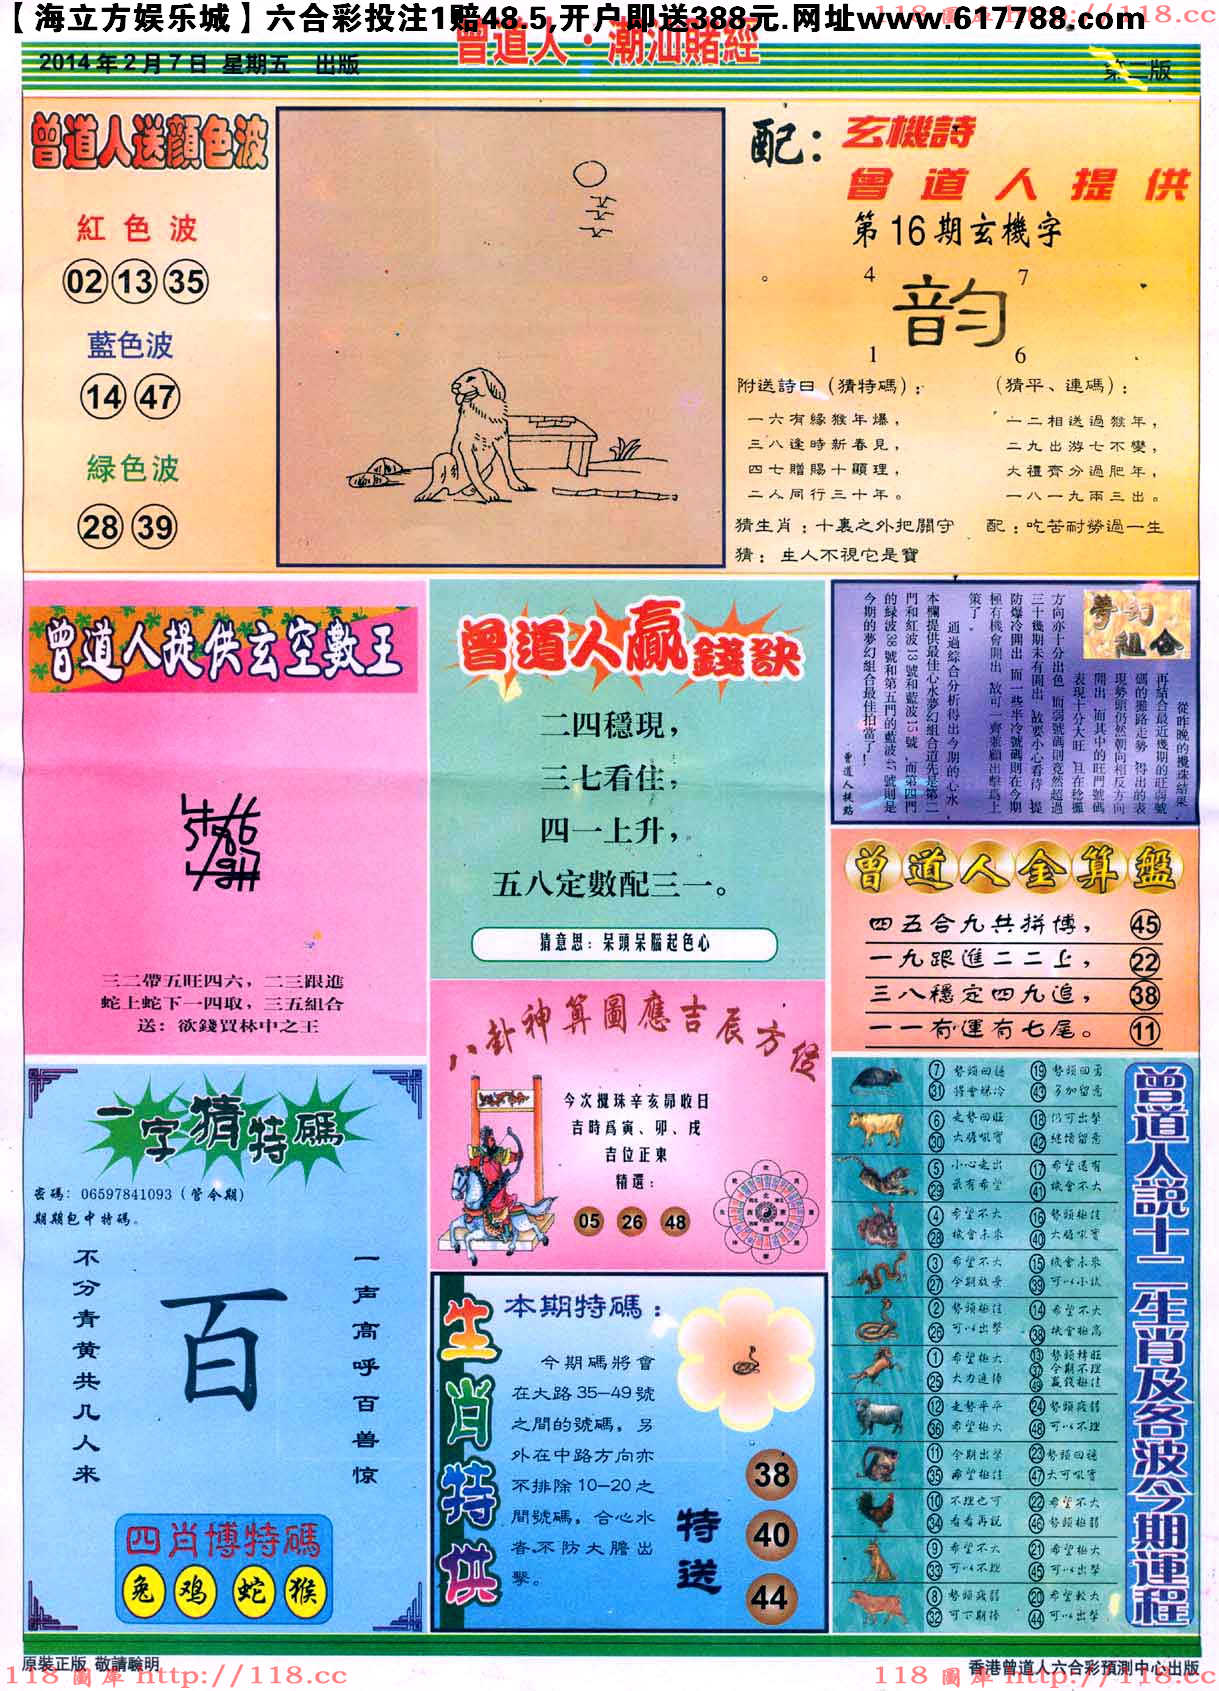 【海立方娱乐城】六合彩投注1赔48.5,开户即送388元.网址www.617788.com
118 圖庫 http://118.cc
曾道人·潮汕賭經
2014年2月7日 星期五 出版
第二版
曾道人送顔色波
紅色波
02 13 35
藍色波
14 47
緑色波
28 39
配：
玄機詩
曾道人提供
第16期玄機字
4 7
韵
1 6
附送詩曰（猜特碼）：
一六有緣猴年爆，
三八逢時新春見，
四七贈賜十顯理，
二人同行三十年。
（猜平、連碼）：
一二相送過猴年，
二九出游七不變，
大禮齊分過肥年，
一八一九兩三出。
猜生肖：十裏之外把關守
配：吃苦耐勞過一生
猜：生人不視它是寶
曾道人提供玄空數王
三二帶五旺四六，二三跟進
蛇上蛇下一四取，三五組合
送：欲錢買林中之王
曾道人贏錢訣
二四穩現，
三七看住，
四一上升，
五八定數配三一。
猜意思：呆頭呆腦起色心
夢幻組合
從昨晚的攪珠結果
再結合最近幾期的旺弱號
碼的攤路走勢，得出的表
現勢頭仍然朝向相反方向
開出，而其中的旺門號碼
表現十分大旺，且在稔攤
方向亦十分出色，而弱號碼則竟然超過
三十幾期未有開出，故要小心看待，提
防爆冷開出，而一些半冷號碼則在今期
極有機會開出，故可一齊兼顧出擊爲上
策了。
通過綜合分析得出今期的心水
本欄提供最佳心水夢幻組合道先是第二
門和紅波13號和藍波15號，而第四門
的緑波38號和第五門的藍波47號則是
今期的夢幻組合最佳拍當了！
曾道人提點
曾道人金算盤
四五合九共拼博， 45
一九跟進二二上， 22
三八穩定四九追， 38
一一有運有七尾。 11
八卦神算圖應吉辰方位
今次攪珠辛亥昴收日
吉時爲寅、卯、戌
吉位正東
精選：
05 26 48
一字猜特碼
密碼：06597841093（管令期）
期期包中特碼。
不分青黄共几人来
百
一声高呼百兽惊
四肖博特碼
兔 鸡 蛇 猴
生肖特供
本期特碼：
今期碼將會
在大路35-49號
之間的號碼，另
外在中路方向亦
不排除10-20之
間號碼，合心水
者不防大膽出
擊。
特送
38
40
44
曾道人説十二生肖及各波今期運程
7 勢頭回穩 19 勢頭回勇
31 將會爆冷 43 多加留意
6 走勢回旺 18 仍可出擊
30 大膽吼實 42 継續留意
5 小心走出 17 希望還有
29 最有希望 41 機會不大
4 希望不大 16 勢頭極佳
28 機會未來 40 大膽吼實
3 希望不大 15 機會未來
27 今期放棄 39 可以小試
2 勢頭極佳 14 希望不大
26 可以出擊 38 機會極高
1 希望極大 13 勢頭轉旺
37 今期不理
25 大力追捧 49 贏錢極佳
12 走勢平平 24 勢頭疲弱
36 希望極大 48 可以不理
11 今期出擊 23 勢頭回穩
35 希望極佳 47 大可吼實
10 不理也可 22 希望不大
34 看看再説 46 勢頭極弱
9 希望不大 21 希望極大
33 可以不理 45 可以出擊
8 勢頭疲弱 20 希望較大
32 可下期捧 44 可以出擊
原裝正版 敬請驗明
香港曾道人六合彩預測中心出版
118 圖庫 http://118.cc
118 圖庫 http://118.cc